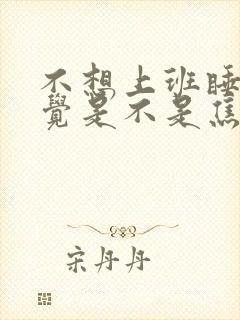 不想上班睡
覺是不是焦
宋丹丹